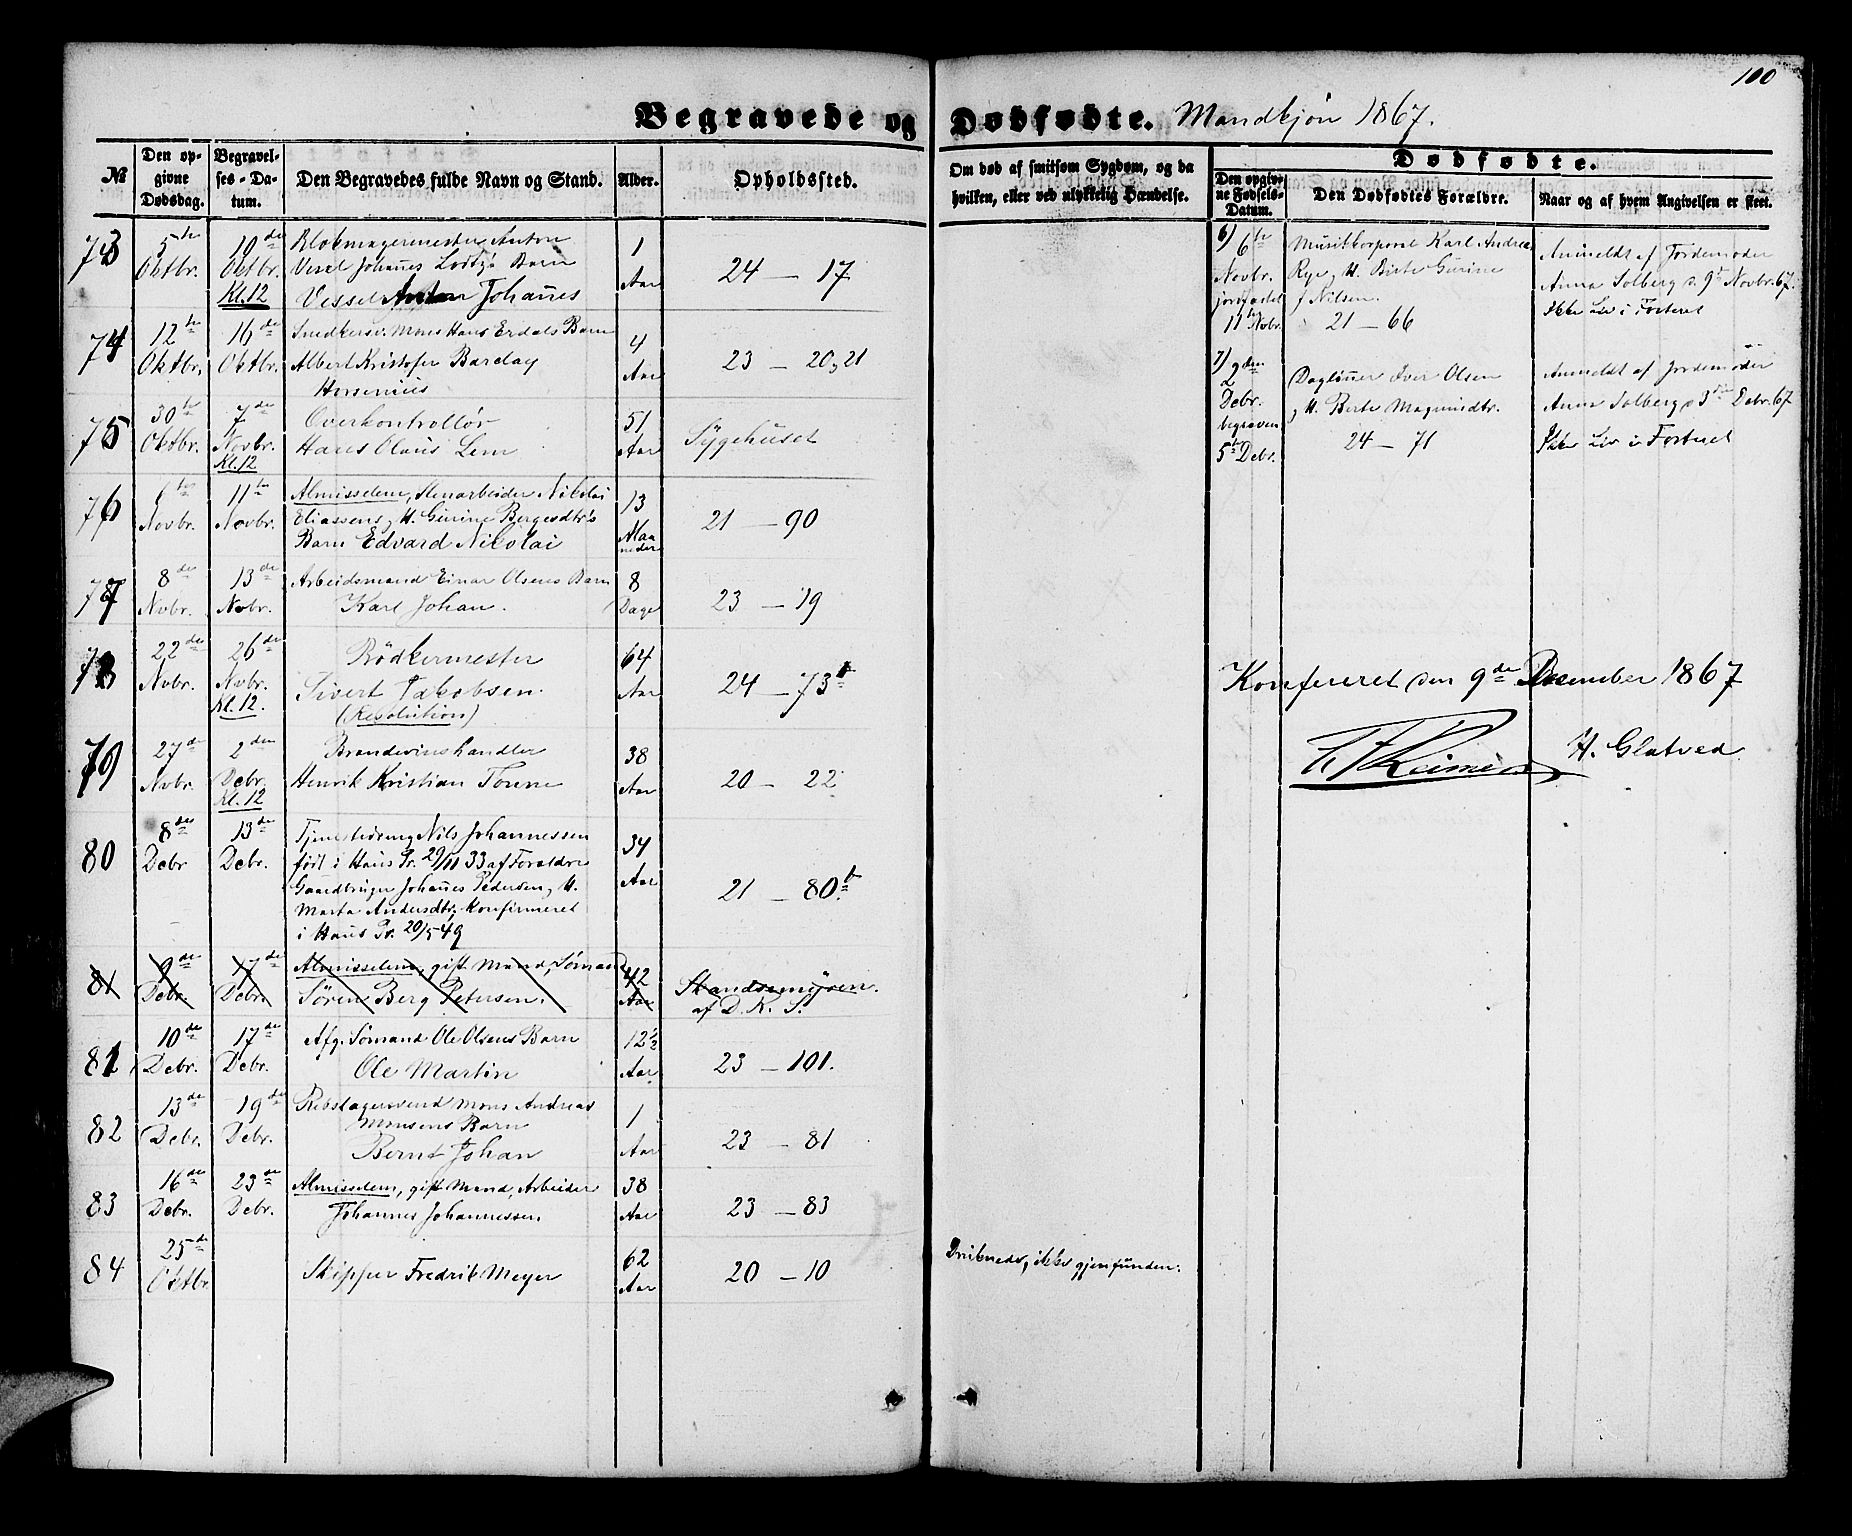 100
Begravede og Dødfødte. Mandkjøn 1867.
№
Den opgivne Dødsdag.
Begravelses-Datum.
Den Begravedes fulde Navn og Stand.
Alder.
Opholdssted.
Om død af smitsom Sygdom, og da hvilken, eller ved ulykkelig Hændelse.
Dødfødte.
Den opgivne Fødsels-Datum.
Den Dødfødtes Forældre.
Naar og af hvem Angivelsen er skeet.
73
5te Oktbr.
10de Oktbr. Kl. 12
Blokmagermester Anton
Vesel Johañes Barn
Vessel Anton Johañes
1 Aar
24 — 17
74
12te Oktbr.
16de Oktbr.
Snedkersv. Mons Hans Erdals Barn
Albert Kristofer Barclay
4 Aar
23 — 20,21
75
30te Oktbr.
7de Novbr. Kl. 12
Overkontrollør
Hans Olaus Lem
51 Aar
Sygehuset
76
Novbr.
11te Novbr.
Almisselem, Stenarbeider Nikolai
Eliassens, H. Gurine Bergesdtrs
Barn Edvard Nikolai
13 Maaneder
21 — 90
77
8de Novbr.
13de Novbr.
Arbeidsmand Einar Olsens Barn
Karl Johan.
8 Dage
23 — 19
78
22de Novbr.
26de Novbr. Kl. 12.
Bödkermester
Sivert Jakobsen.
(Resolution)
64 Aar
24 — 73b
79
27de Novbr.
2den Debr. Kl. 12
Brændevinshandler
Henrik Kristian
38 Aar
20 — 22
80
8de Debr
13de Debr.
Tjenestedreng Nils Johannessen
født i Haus Pr. 29/11 33 af Forældre
Gaardbruger Johañes Pedersen, H.
Marta Andersdtr, Konfirmeret
i Haus Pr. 20/5 49
34 Aar
21 — 80b.
81
9de Debr.
17de Debr.
Almisselem, gift Mand, Sömand
Sören Berg Petersen.
42 Aar
af D. K. S.
81
10de Debr.
17de Debr.
Afg. Sömand Ole Olsens Barn
Ole Martin
12½ Aar
23 — 101.
82
13de Debr.
19de Debr.
Rebslagersvend Mons Andreas
Monsens Barn
Bernt Johan
1 Aar
23 — 81
83
16de Debr.
23de Debr.
Almisselem, gift Mand, Arbeider
Johannes Johannessen.
38 Aar
23 — 83
84
25de Oktbr.
Skipper Fredrik Meyer
62 Aar
20 — 10
Druknede, ikke gjenfunden.
6) 6te Novbr. jordfæstet 11te Novbr.
Musikkorporal Karl Andreas
Rye, H. Birte Gurine
f Nilsen.
21 — 66
Anmeldt af Jordemoder
Anna Solberg s. 9de Novbr. 67.
Ikke Liv i Fosteret
7) 2den Debr. begraven 5te Debr.
Daglöñer Iver Olsen
, H. Berte Magnusdtr.
24 — 71
Anmeldt af Jordemoder
Anna Solberg s 3die Debr. 67
Ikke Liv i Fosteret
Konfereret den 9de December 1867
H. Glatved